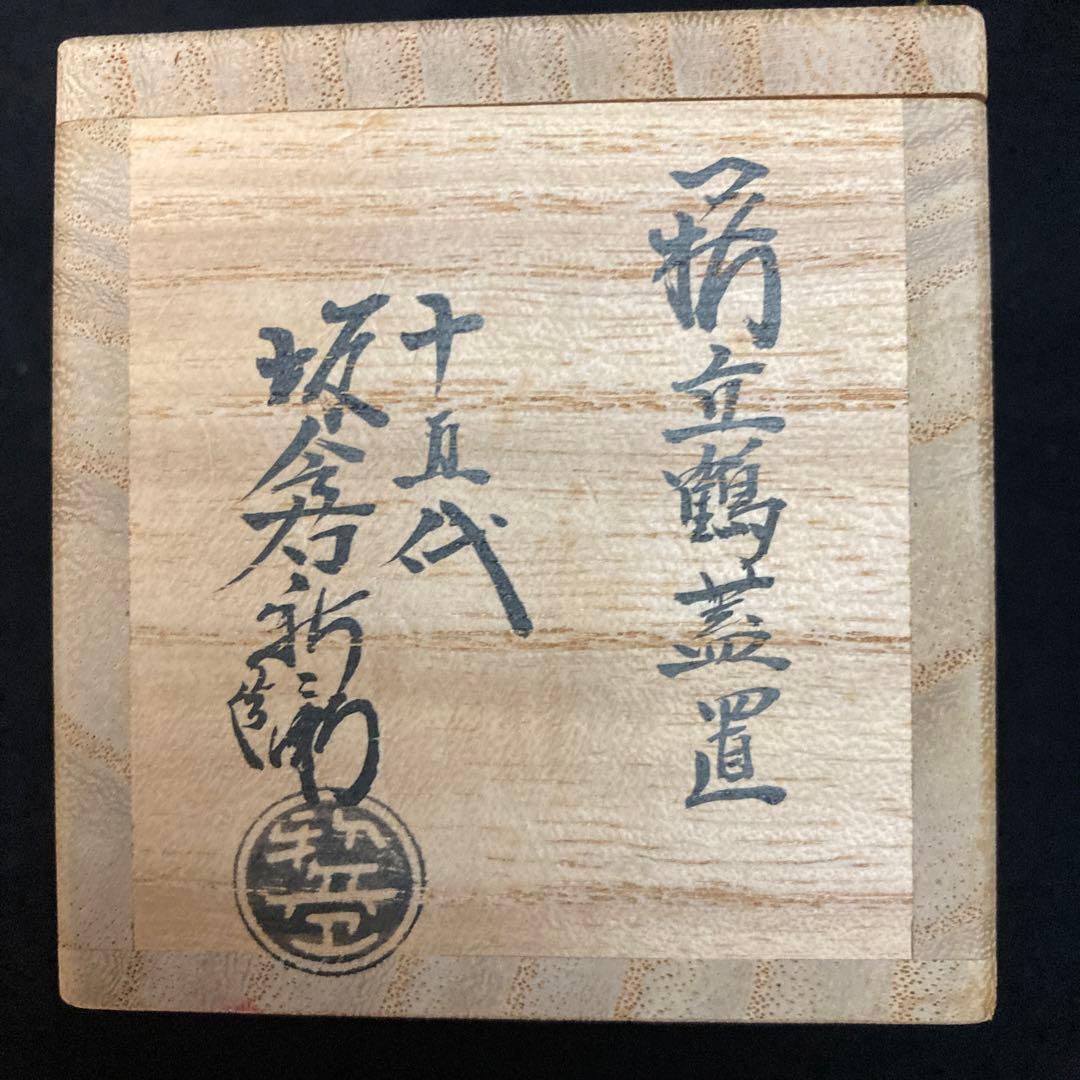 萩立鶴蓋置
十五代
坂倉新兵衛造